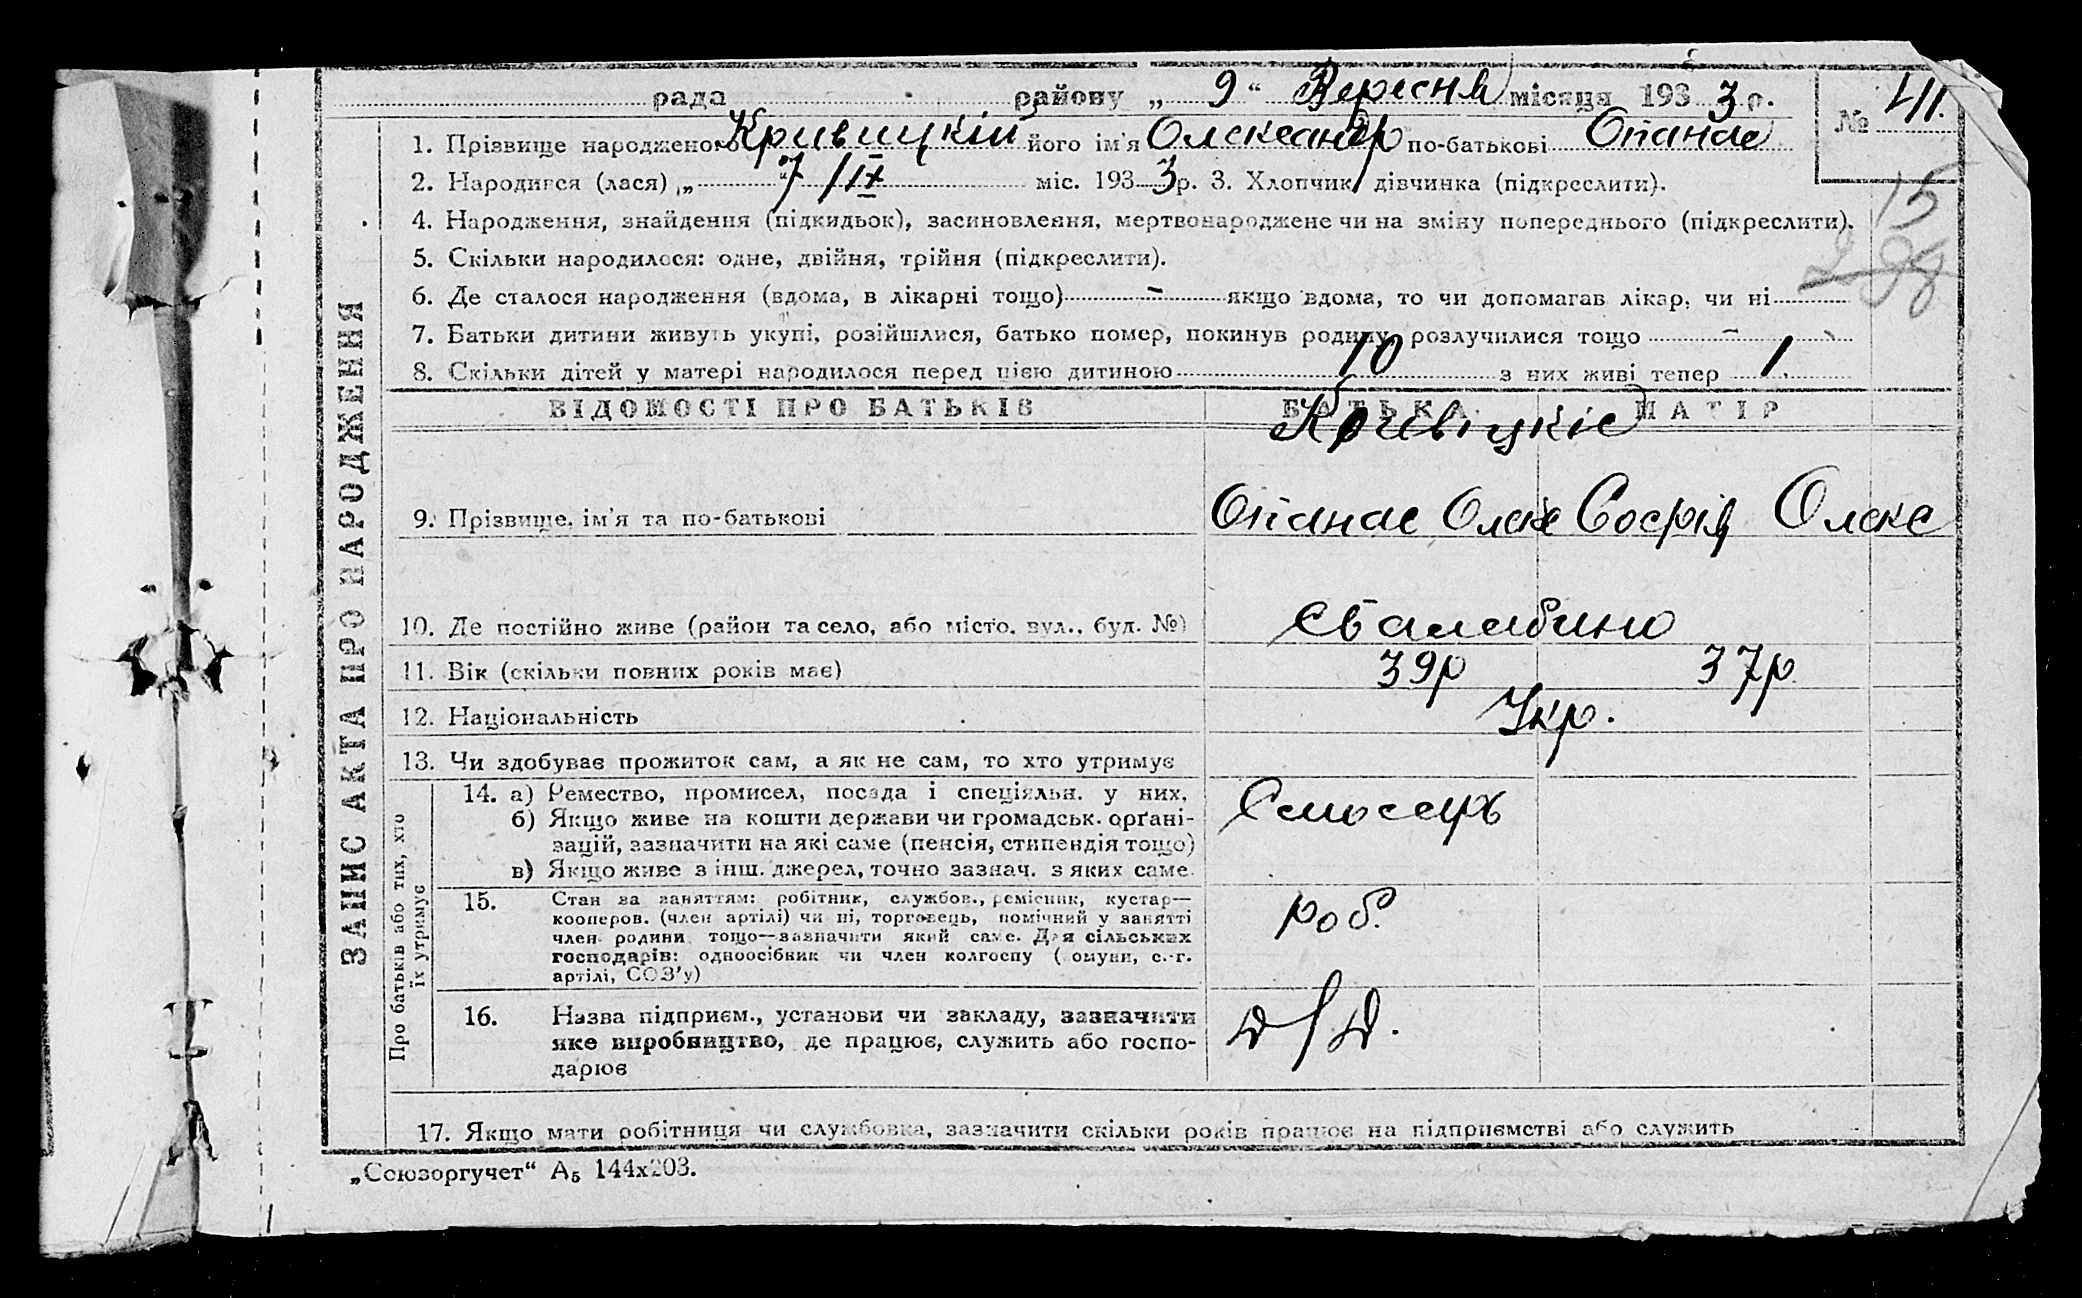 рада району „ 9 “ Вересня місяця 193 3 р.
№ 411.
1. Прізвище народженого Кривицкій його ім'я Олександр по-батькові Опанас
2. Народився (лася) „ 7/IX міс. 193 3 р. 3. Хлопчик, дівчинка (підкреслити).
15
4. Народження, знайдення (підкидьок), засиновлення, мертвонароджене чи на зміну попереднього (підкреслити).
5. Скільки народилося: одне, двійня, трійня (підкреслити).
6. Де сталося народження (вдома, в лікарні тощо) – якщо вдома, то чи допомагав лікар, чи ні
7. Батьки дитини живуть укупі, розійшлися, батько помер, покинув родину, розлучилися тощо –
8. Скільки дітей у матері народилося перед цією дитиною 10 з них живі тепер 1
ВІДОМОСТІ ПРО БАТЬКІВ БАТЬКА МАТІР
Кривіцкіє
9. Прізвище, ім'я та по-батькові Опанас Олекс Софія Олекс
10. Де постійно живе (район та село, або місто, вул., буд. №)
11. Вік (скільки повних років має) 39р 37р
12. Національність Укр.
13. Чи здобуває прожиток сам, а як не сам, то хто утримує
14. а) Ремество, промисел, посада і спеціяльн. у них.
б) Якщо живе на кошти держави чи громадськ. орґані-
зацій, зазначити на які саме (пенсія, стипендія тощо)
в) Якщо живе з інш. джерел, точно зазнач. з яких саме.
15. Стан за заняттям: робітник, службов., ремісник, кустар—
кооперов. (член артілі) чи ні, торговець, помічний у занятті
член родини тощо—зазначити який саме. Для сільських
господарів: одноосібник чи член колгоспу (комуни, с.-г.
артілі, СОЗ'у)
роб.
16. Назва підприєм., установи чи закладу, зазначити
яке виробництво, де працює, служить або госпо-
дарює
17. Якщо мати робітниця чи службовка, зазначити скільки років працює на підприємстві або служить
ЗАПИС АКТА ПРО НАРОДЖЕННЯ
Про батьків або тих, хто
їх утримує
„Союзоргучет“ А₅ 144х203.